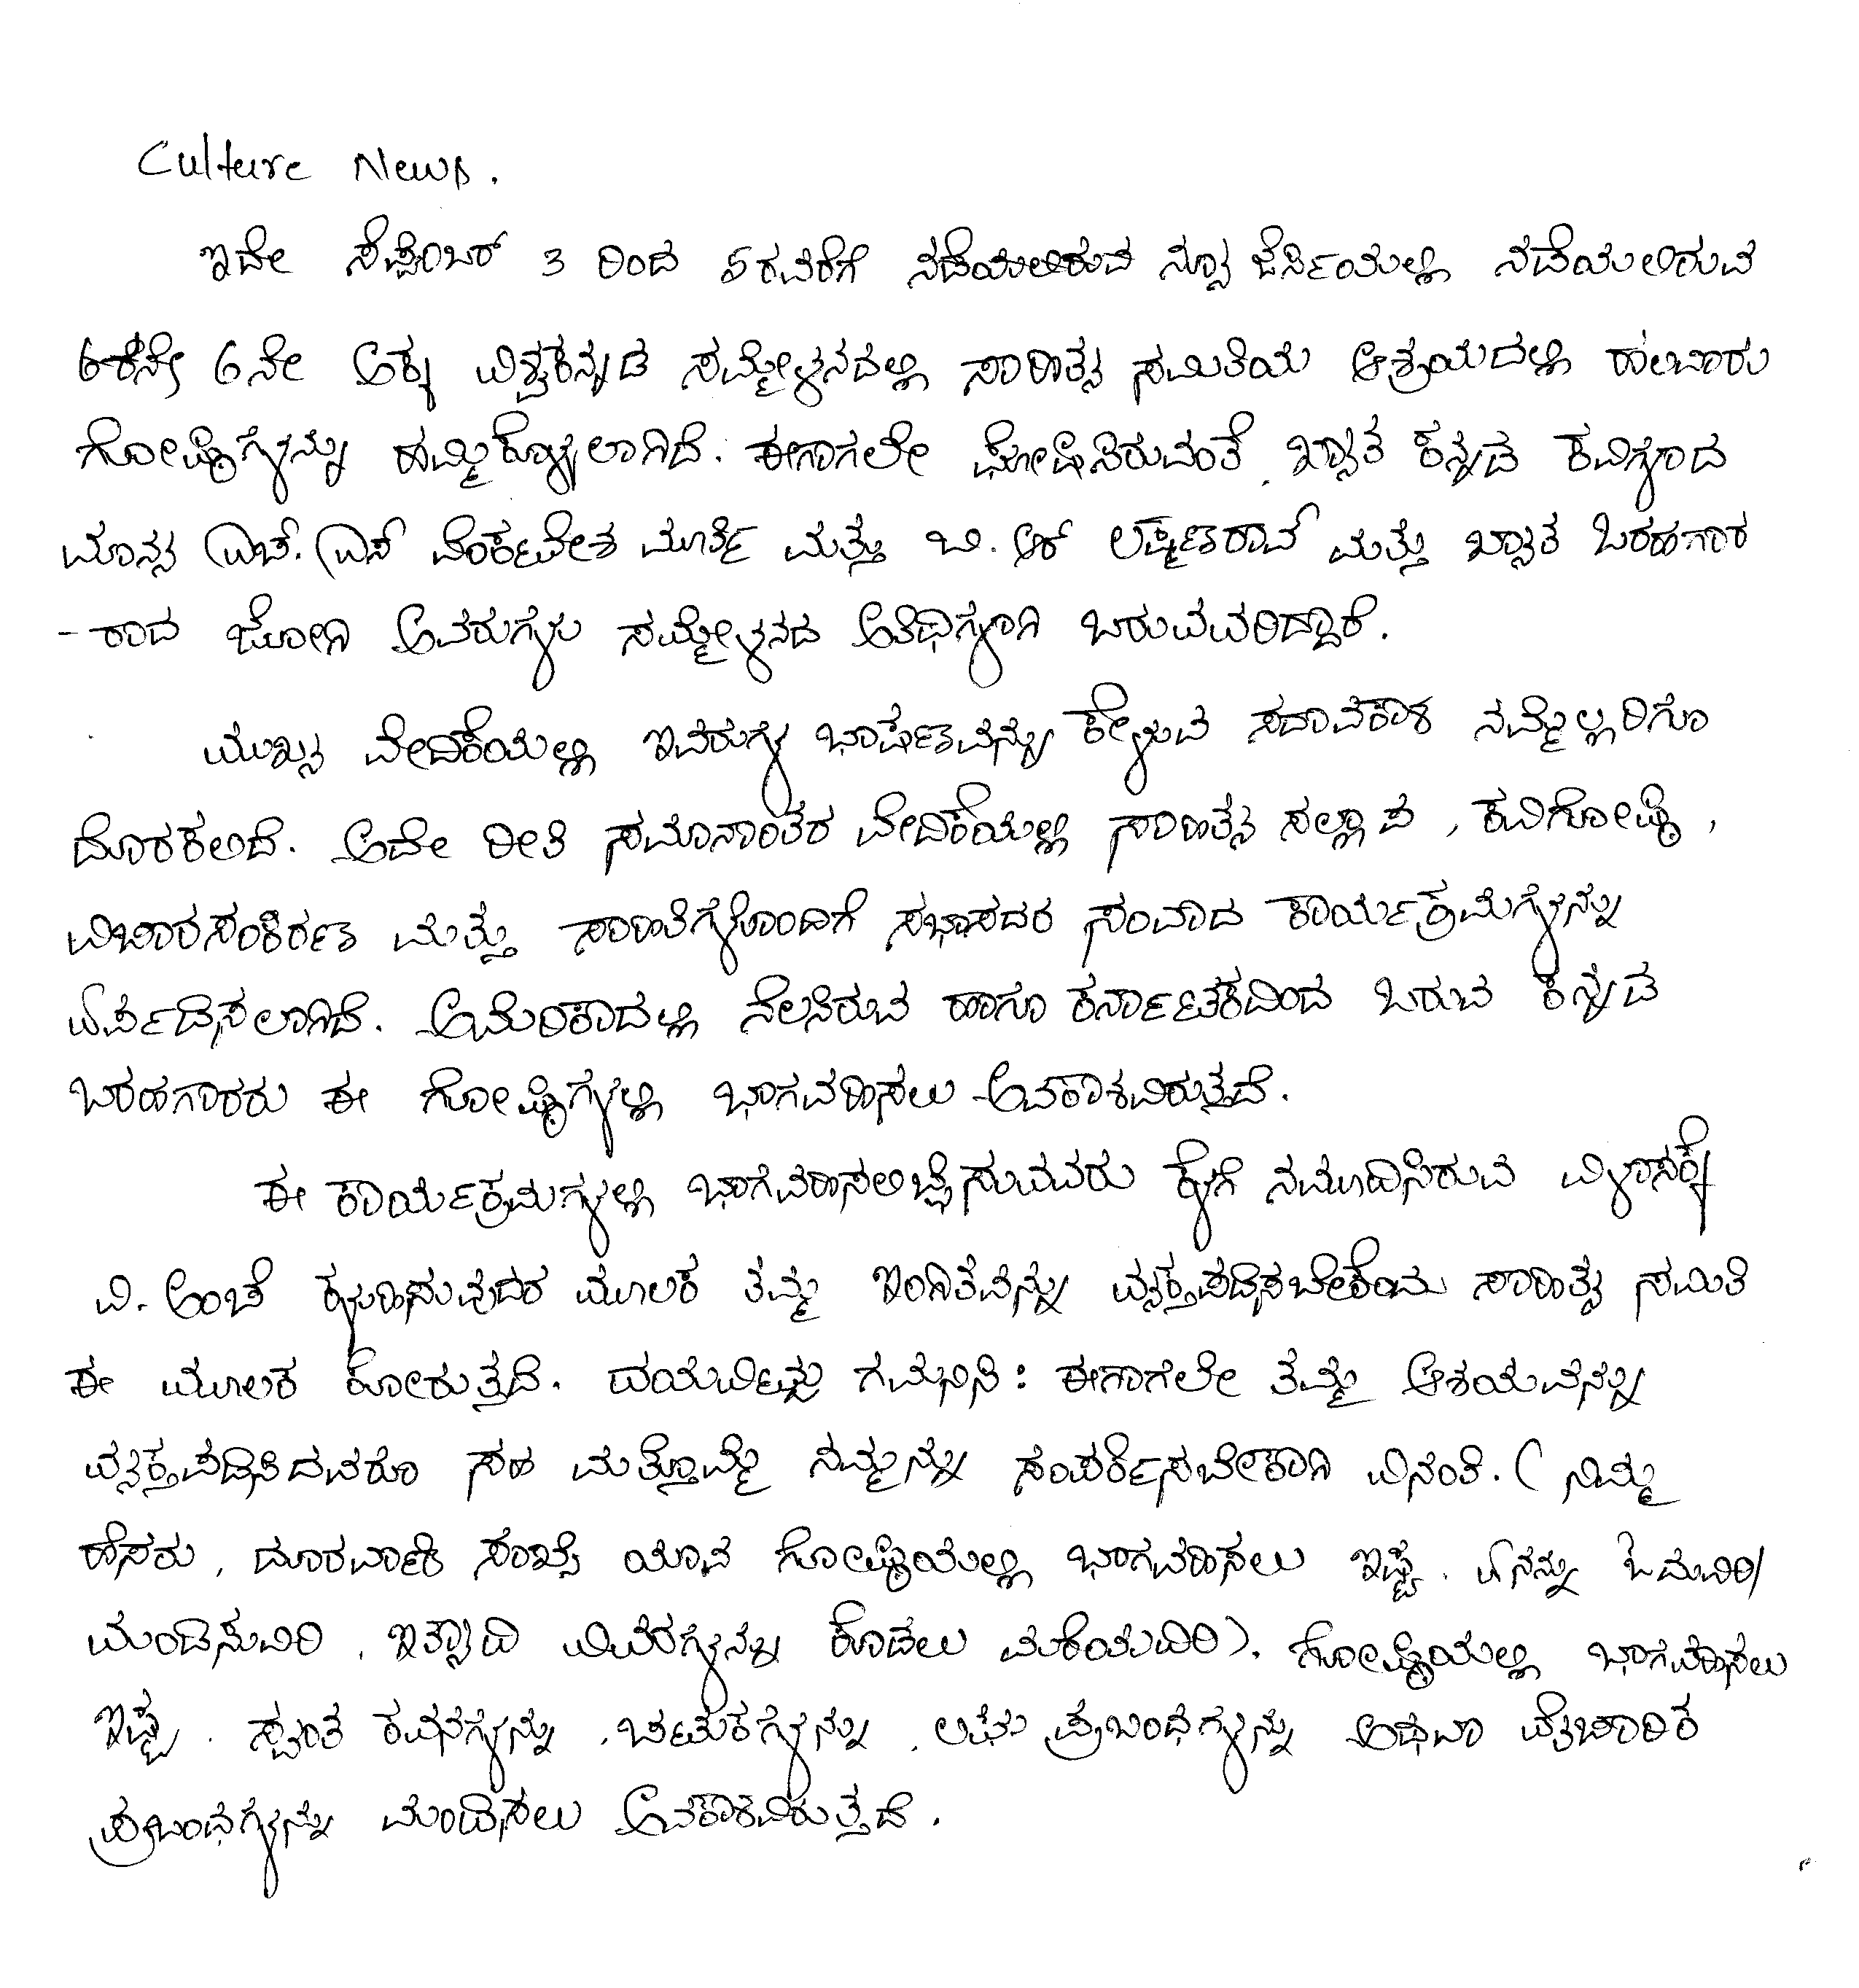 Culture News.
ಇದೇ ಸೆಪ್ಟೆಂಬರ್ 3 ರಿಂದ 5ರವರೆಗೆ ನಡೆಯಲಿರುವ ನ್ಯೂ ಜೆರ್ಸಿಯಲ್ಲಿ ನಡೆಯಲಿರುವ
6ನೇ ಅಕ್ಕ ವಿಶ್ವಕನ್ನಡ ಸಮ್ಮೇಳನದಲ್ಲಿ ಸಾಹಿತ್ಯ ಸಮಿತಿಯ ಆಶ್ರಯದಲ್ಲಿ ಹಲವಾರು
ಗೋಷ್ಠಿಗಳನ್ನು ಹಮ್ಮಿಕೊಳ್ಳಲಾಗಿದೆ. ಈಗಾಗಲೇ ಘೋಷಿಸಿರುವಂತೆ, ಖ್ಯಾತ ಕನ್ನಡ ಕವಿಗಳಾದ
ಮಾನ್ಯ ಎಚ್. ಎಸ್ ವೆಂಕಟೇಶ ಮೂರ್ತಿ ಮತ್ತು ಬಿ. ಆರ್ ಲಕ್ಷ್ಮಣರಾವ್ ಮತ್ತು ಖ್ಯಾತ ಬರಹಗಾರ
-ರಾದ ಜೋಗಿ ಅವರುಗಳು ಸಮ್ಮೇಳನದ ಅತಿಥಿಗಳಾಗಿ ಬರುವವರಿದ್ದಾರೆ.
ಮುಖ್ಯ ವೇದಿಕೆಯಲ್ಲಿ ಇವರುಗಳ ಭಾಷಣವನ್ನು ಕೇಳುವ ಸದಾವಕಾಶ ನಮ್ಮೆಲ್ಲರಿಗೂ
ದೊರಕಲಿದೆ. ಅದೇ ರೀತಿ ಸಮಾನಾಂತರ ವೇದಿಕೆಯಲ್ಲಿ ಸಾಹಿತ್ಯ ಸಲ್ಲಾಪ, ಕವಿಗೋಷ್ಠಿ,
ವಿಚಾರಸಂಕಿರಣ ಮತ್ತು ಸಾಹಿತಿಗಳೊಂದಿಗೆ ಸಭಾಸದರ ಸಂವಾದ ಕಾರ್ಯಕ್ರಮಗಳನ್ನು
ಏರ್ಪಡಿಸಲಾಗಿದೆ. ಅಮೆರಿಕಾದಲ್ಲಿ ನೆಲಸಿರುವ ಹಾಗೂ ಕರ್ನಾಟಕದಿಂದ ಬರುವ ಕನ್ನಡ
ಬರಹಗಾರರು ಈ ಗೋಷ್ಠಿಗಳಲ್ಲಿ ಭಾಗವಹಿಸಲು ಅವಕಾಶವಿರುತ್ತದೆ.
ಈ ಕಾರ್ಯಕ್ರಮಗಳಲ್ಲಿ ಭಾಗವಹಿಸಲಿಚ್ಛಿಸುವವರು ಕೆಳಗೆ ನಮೂದಿಸಿರುವ ವಿಳಾಸಕ್ಕೆ
ವಿ- ಅಂಚೆ ಕಳುಹಿಸುವುದರ ಮೂಲಕ ತಮ್ಮ ಇಂಗಿತವನ್ನು ವ್ಯಕ್ತಪಡಿಸಬೇಕೆಂದು ಸಾಹಿತ್ಯ ಸಮಿತಿ
ಈ ಮೂಲಕ ಕೋರುತ್ತದೆ. ದಯವಿಟ್ಟು ಗಮನಿಸಿ: ಈಗಾಗಲೇ ತಮ್ಮ ಆಶಯವನ್ನು
ವ್ಯಕ್ತಪಡಿಸಿದವರೂ ಸಹ ಮತ್ತೊಮ್ಮೆ ನಮ್ಮನ್ನು ಸಂಪರ್ಕಿಸಬೇಕಾಗಿ ವಿನಂತಿ. ( ನಿಮ್ಮ
ಹೆಸರು, ದೂರವಾಣಿ ಸಂಖ್ಯೆ ಯಾವ ಗೋಷ್ಠಿಯಲ್ಲಿ ಭಾಗವಹಿಸಲು ಇಷ್ಟ, ಏನನ್ನು ಓದುವಿರಿ/
ಮಂಡಿಸುವಿರಿ, ಇತ್ಯಾದಿ ವಿವರಗಳನ್ನು ಕೊಡಲು ಮರೆಯದಿರಿ). ಗೋಷ್ಠಿಯಲ್ಲಿ ಭಾಗವಹಿಸಲು
ಇಷ್ಟ. ಸ್ವಂತ ಕವನಗಳನ್ನು, ಚುಟುಕಗಳನ್ನು, ಲಘು ಪ್ರಬಂಧಗಳನ್ನು ಅಥವಾ ವೈಚಾರಿಕ
ಪ್ರಬಂಧಗಳನ್ನು ಮಂಡಿಸಲು ಅವಕಾಶವಿರುತ್ತದೆ.